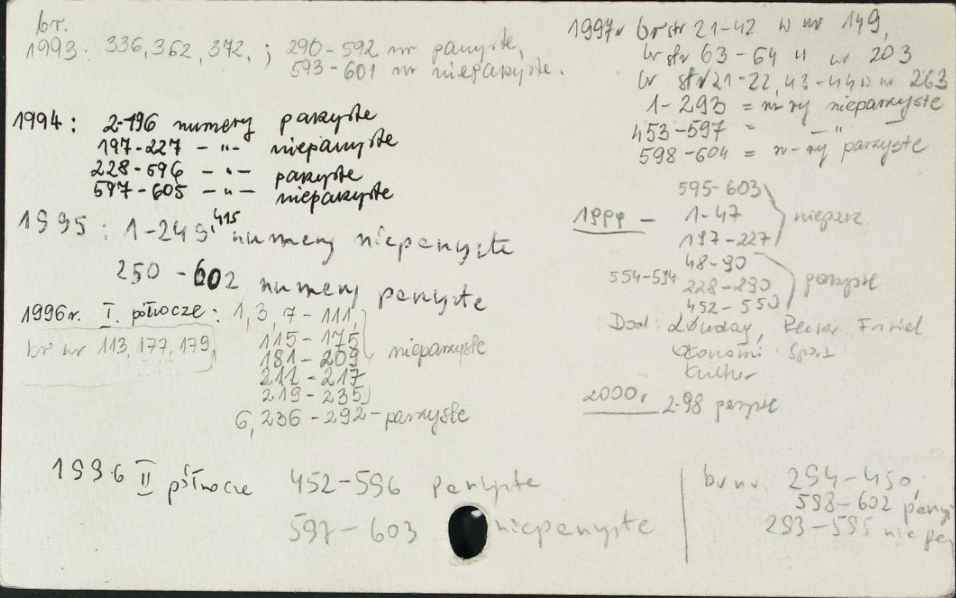 br.
1993: 336, 362, 372, ; 290-592 nr parzyste,
593-601 nr nieparzyste.
1994: 2-196 numery parzyste
197-227 -"- nieparzyste
228-596 -"- parzyste
597-605 -"- nieparzyste
1995: 1-249, 415 numery nieparzyste
250-602 numery parzyste
1996r. I. półrocze: 1, 3, 7-111,
br nr 113, 177, 179,
115-175
181-209 nieparzyste
211-217
219-235
6, 236-292 - parzyste
1996 II półrocze 452-596 parzyste
597-603 nieparzyste
br nr. 294-450,
598-602 parzy
293-595 nie par
1997r br str 21-42 w nr 149,
br str 63-64 w nr 203
br str 21-22, 43-44 w nr 263
1-293 = n-ry nieparzyste
453-597 = -"-
598-604 = n-ry parzyste
1999 - 595-603
1-47 nieparz.
197-227
48-90
554-594 228-290 parzyste
452-550
Dod:
Sport
Kultur
2000r. 2-98 parzyste